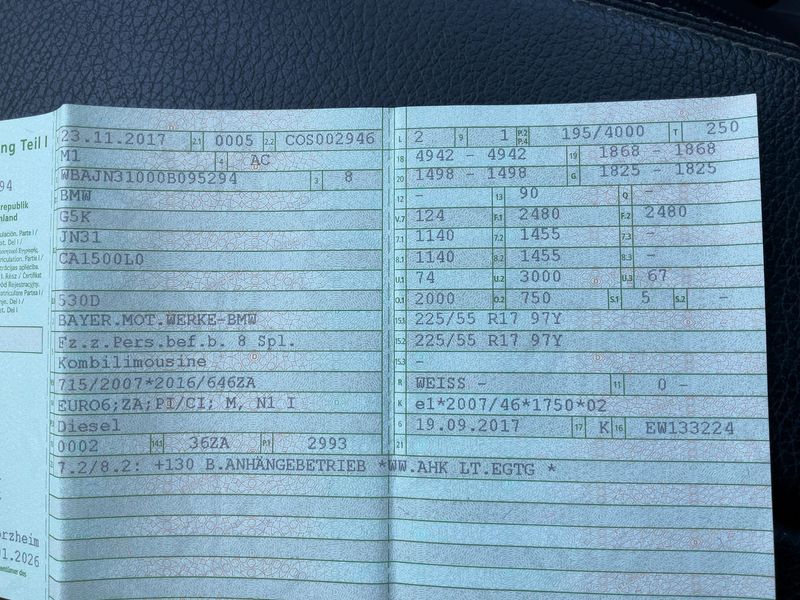 ng Teil I
94
republik
hland
23.11.2017 2.1 0005 2.2 COS002946
M1 4 AC
WBAJN31000B095294 3 8
BMW
G5K
JN31
CA1500L0
530D
BAYER.MOT.WERKE-BMW
Fz.z.Pers.bef.b. 8 Spl.
Kombilimousine
715/2007*2016/646ZA
EURO6;ZA;PI/CI; M, N1 I
Diesel
0002 14.1 36ZA P.1 2993
L 2 9 1 P.2 P.4 195/4000 T 250
18 4942 - 4942 19 1868 - 1868
20 1498 - 1498 G 1825 - 1825
12 - 13 90 Q -
V.7 124 F.1 2480 F.2 2480
7.1 1140 7.2 1455 7.3 -
8.1 1140 8.2 1455 8.3 -
U.1 74 U.2 3000 U.3 67
O.1 2000 O.2 750 S.1 5 S.2 -
15.1 225/55 R17 97Y
15.2 225/55 R17 97Y
15.3 -
R WEISS - 11 0 -
K e1*2007/46*1750*02
6 19.09.2017 17 K 16 EW133224
21
7.2/8.2: +130 B.ANHÄNGEBETRIEB *WW.AHK LT.EGTG *
orzheim
1.2026